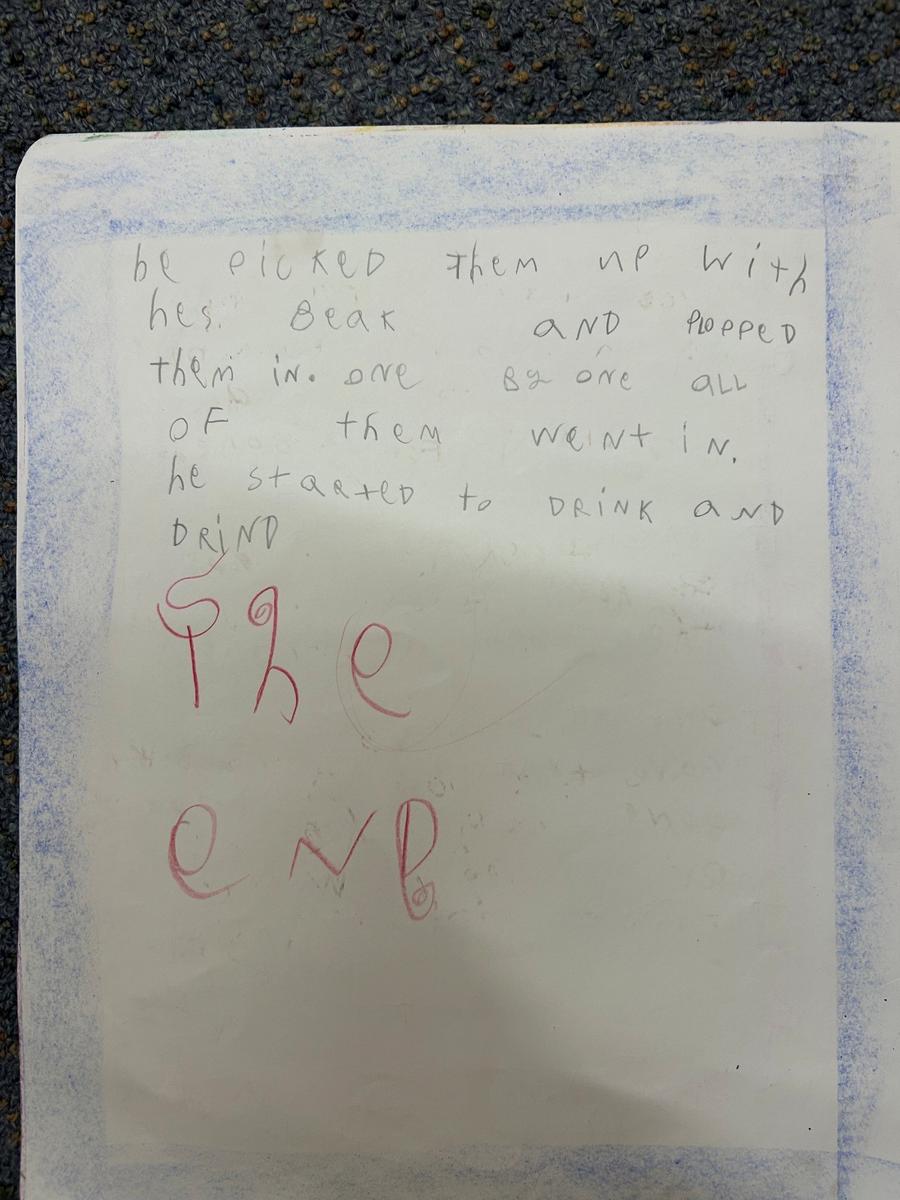 he picked them up with
hes. Beak and plopped
them in. one By one all
of them weint in.
he started to drink and
drind
The
end